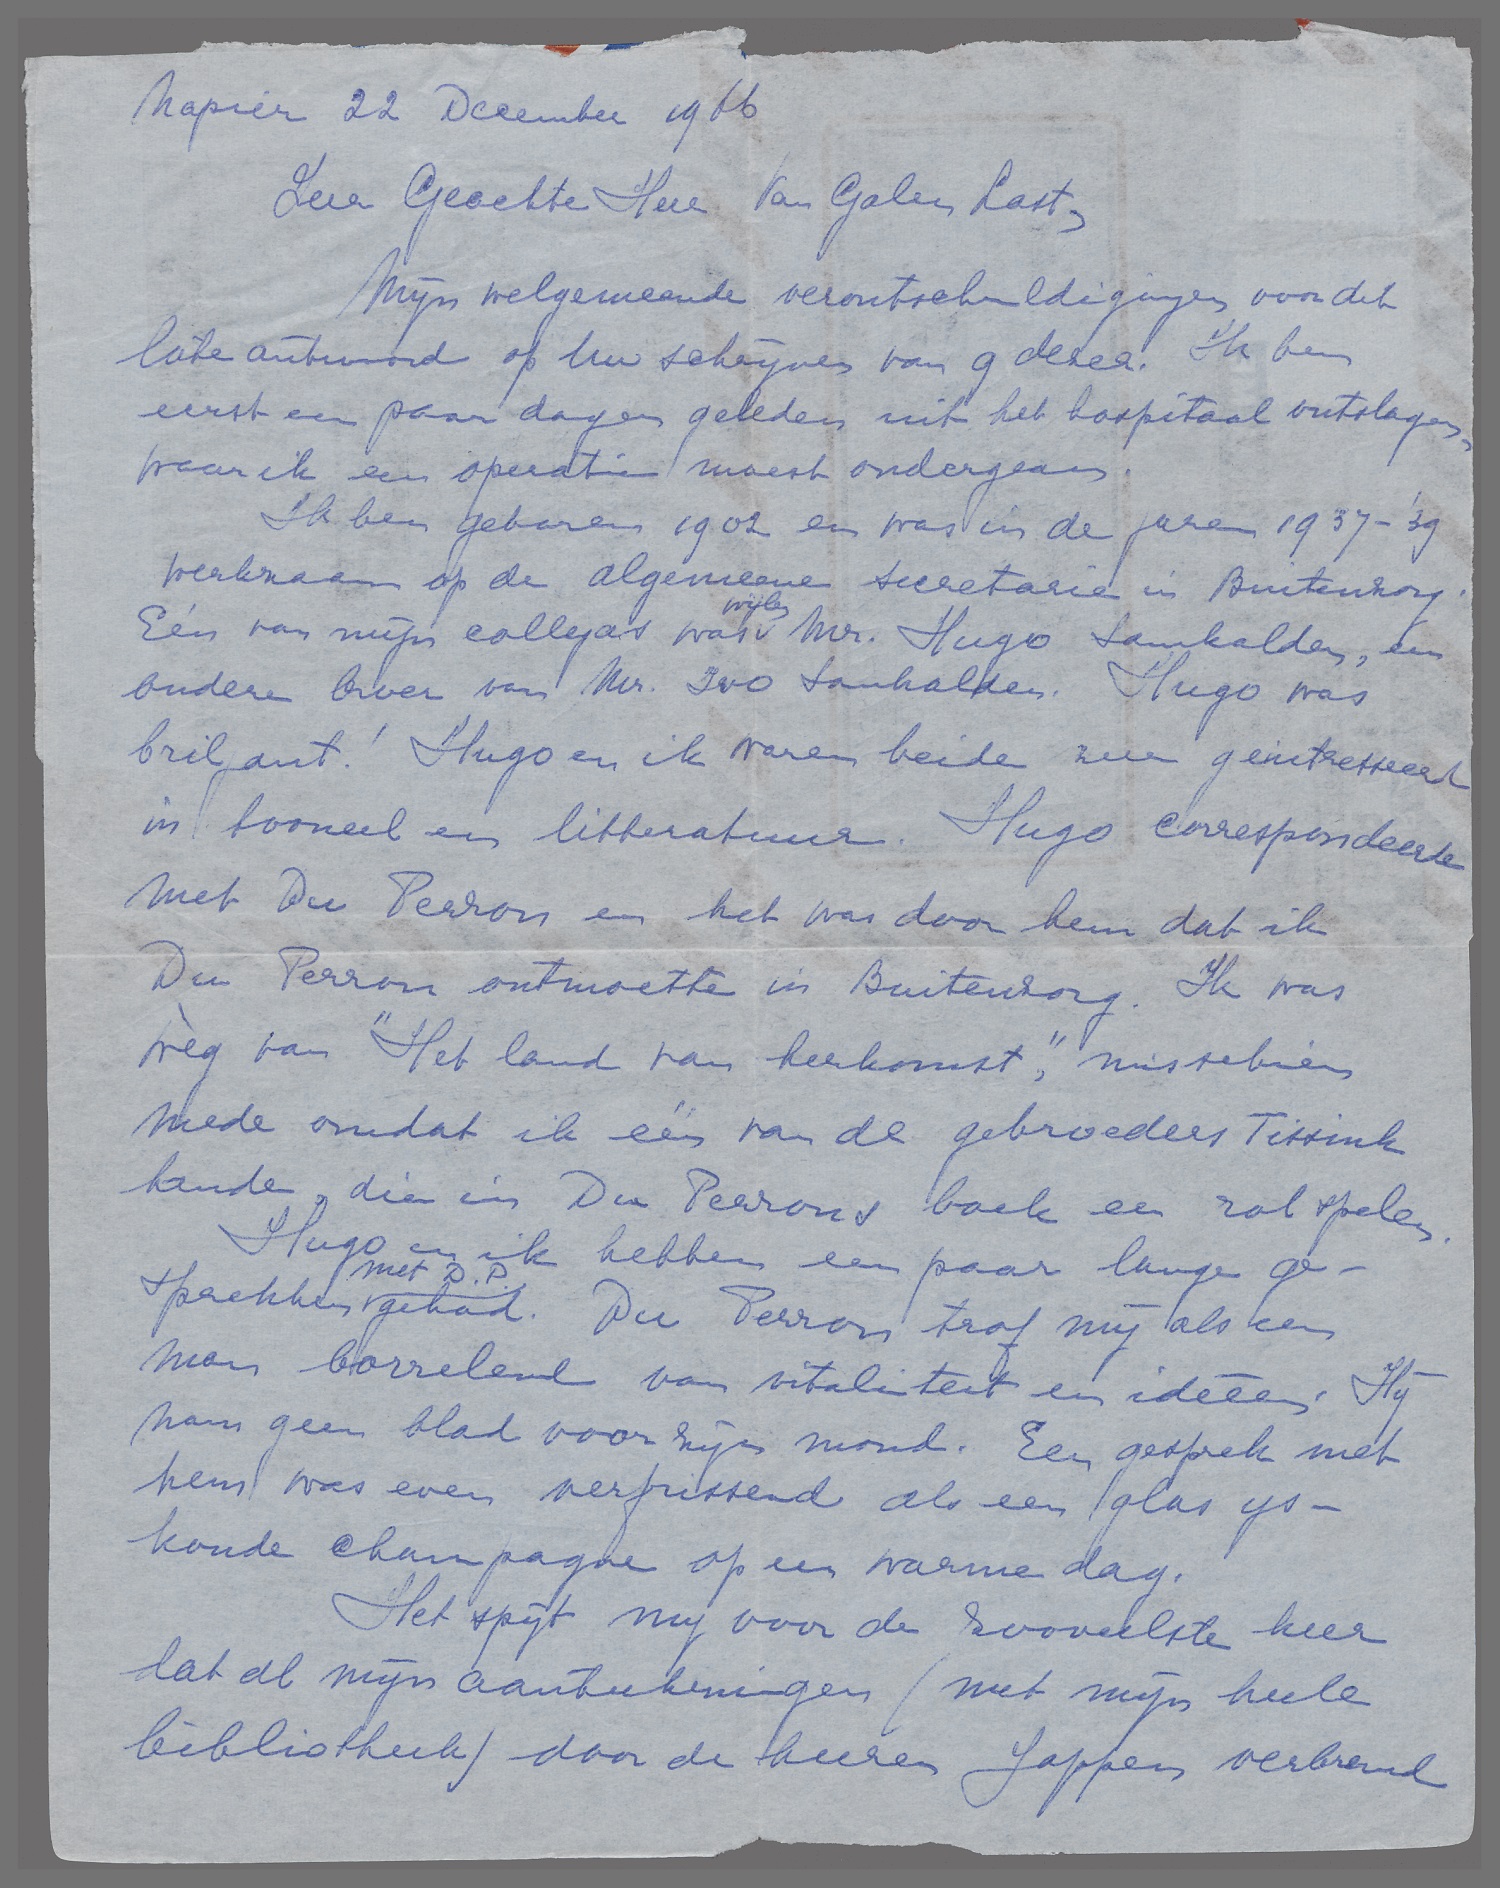 Napier 22 December 1966
Zeer Geachte Heer Van Galen Last,
Mijn welgemeende verontschuldigingen voor dit
late antwoord op Uw schrijven van 9 dezer. Ik ben
eerst een paar dagen geleden uit het hospitaal ontslagen,
waar ik een operatie moest ondergaan.
Ik ben geboren 1902 en was in de jaren 1937-'39
werkzaam op de algemeene secretarie in Buitenzorg.
wijlen
Eén van mijn collegas was Mr. Hugo Samkalden, een
oudere broer van Mr. Ivo Samkalden. Hugo was
briljant! Hugo en ik waren beide zeer geintresseerd
in tooneel en litteratuur. Hugo correspondeerde
met Du Perron en het was door hem dat ik
Du Perron ontmoette in Buitenzorg. Ik was
wèg van "Het land van herkomst", misschien
mede omdat ik één van de gebroeders Tissink
kende, die in Du Perrons boek een rol spelen.
Hugo en ik hebben een paar lange ge-
met D.P.
sprekken gehad. Du Perron trof mij als een
man borrelend van vitaliteit en ideeën. Hij
nam geen blad voor zijn mond. Een gesprek met
hem was even verfrissend als een glas ijs-
koude champagne op een warme dag.
Het spijt mij voor de zooveelste keer
dat al mijn aanteekeningen (met mijn heele
bibliotheek) door de heeren Jappen verbrand